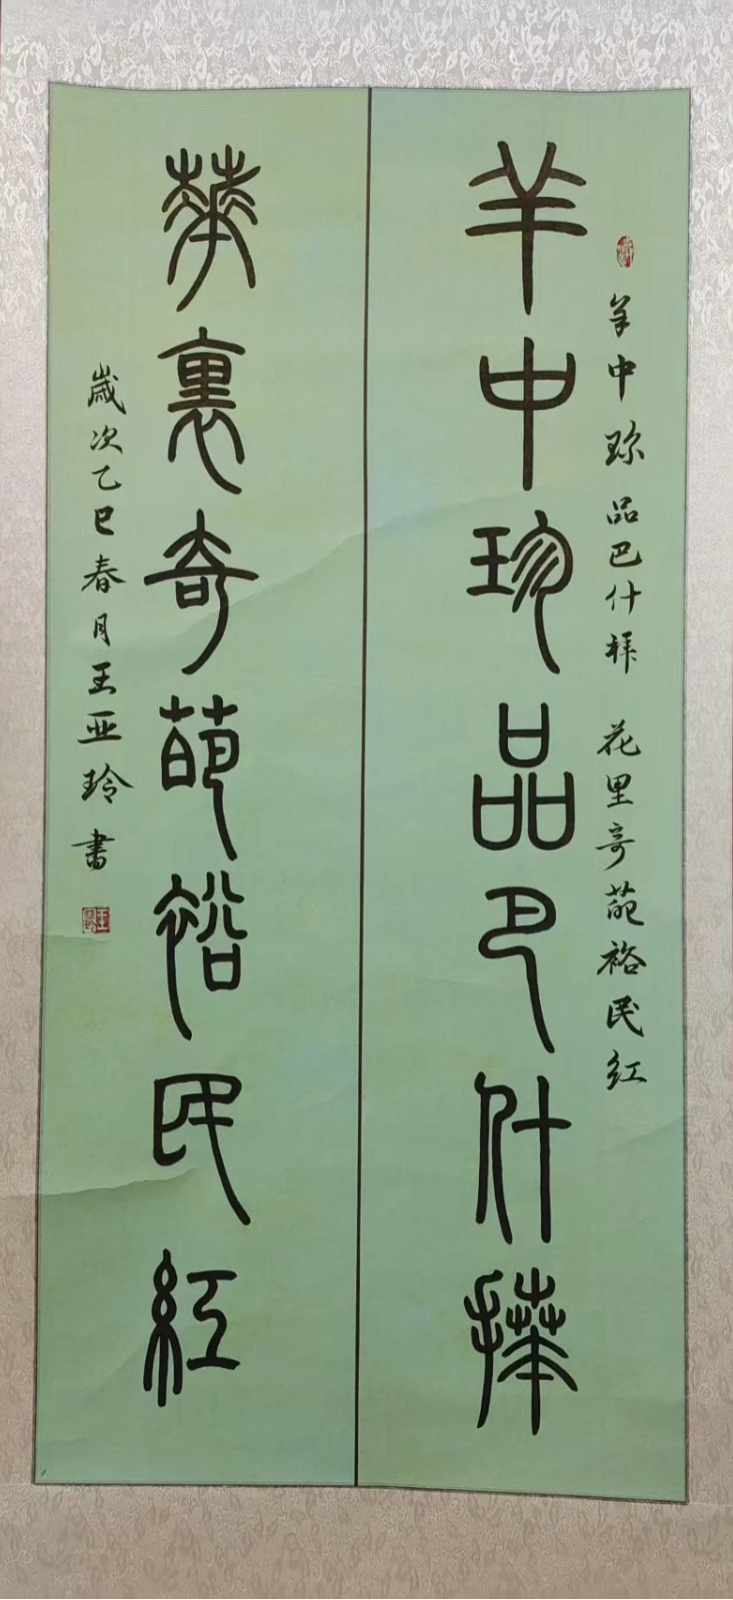 羊中珎品巴什拜 花里奇葩裕民红
羊中珍品巴什拜
華裏奇葩裕民紅
歲次乙巳春月王亚玲書